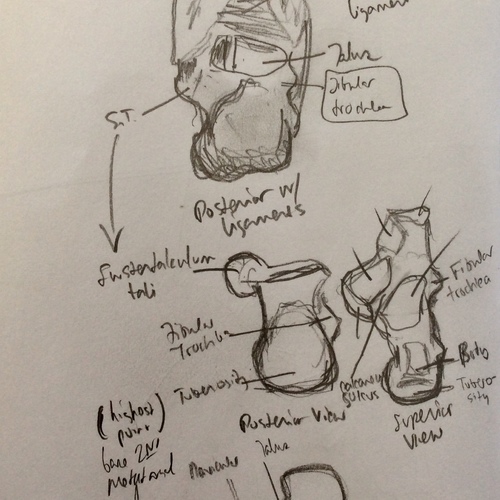 ligament
Talus
Fibular
trochlea
S.T.
Posterior w/
ligaments
Sustentaculum
tali
Fibular
Trochlea
Tuberosity
Posterior View
calcaneal
sulcus
Fibular
trochlea
Body
Tubero
sity
Superior
View
(highest
point
base 2ND
metatarsal
Talus
Navicular